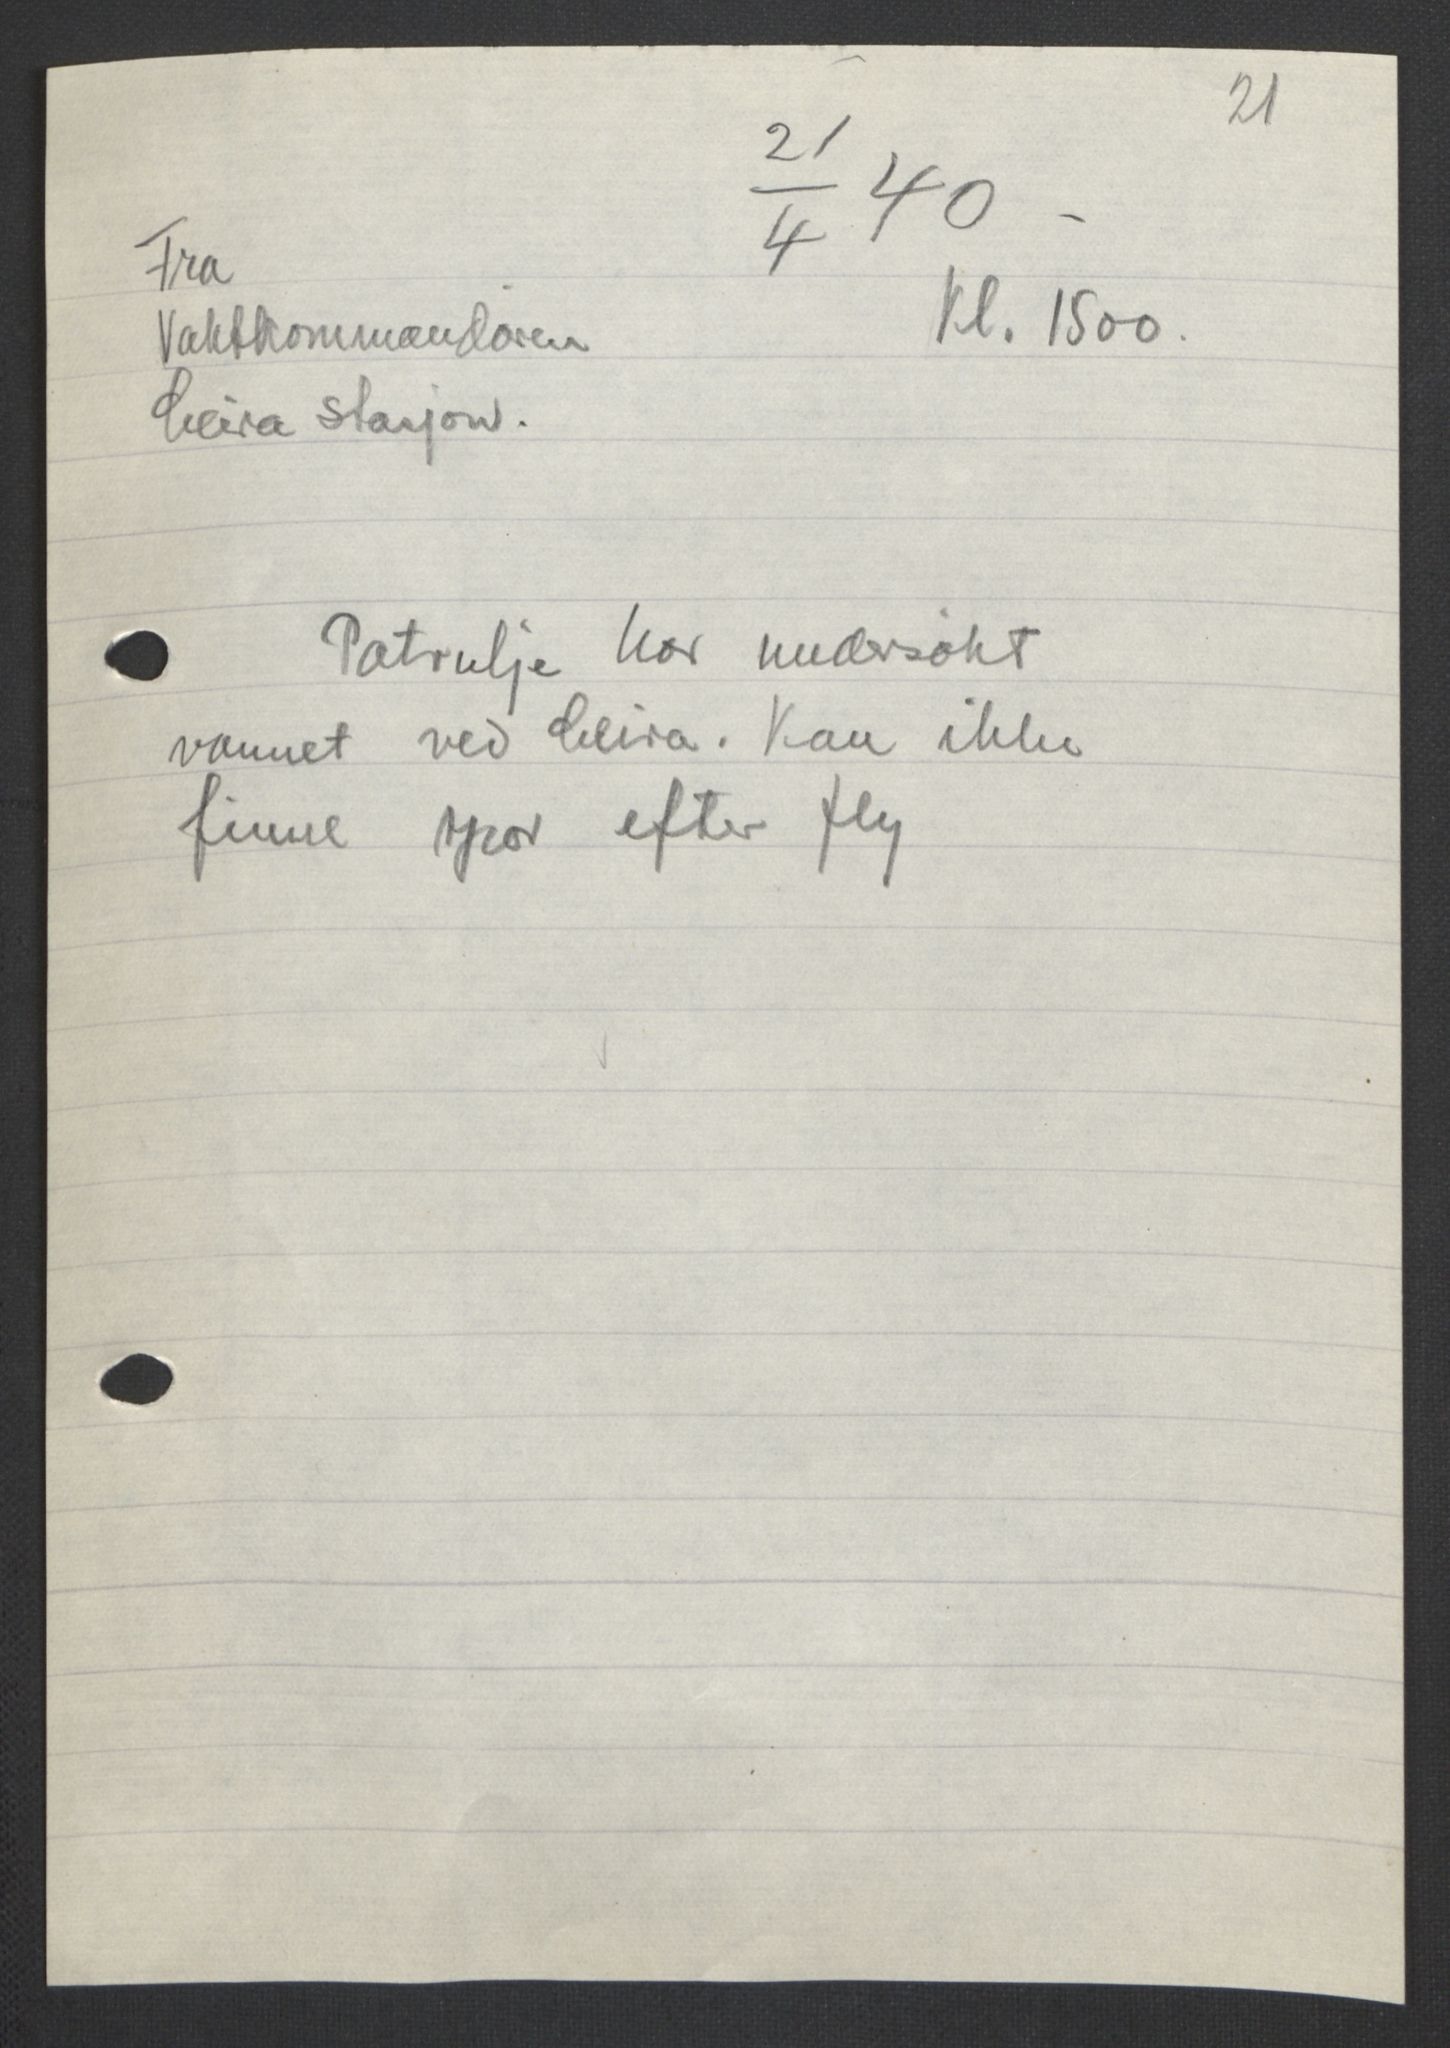 21
21/4 40 -
Fra
Kl. 1500.
Vaktkommandøren
Leira stasjon.
Patrulje har undersøkt
vannet ved Leira. Kan ikke
finne spor efter fly